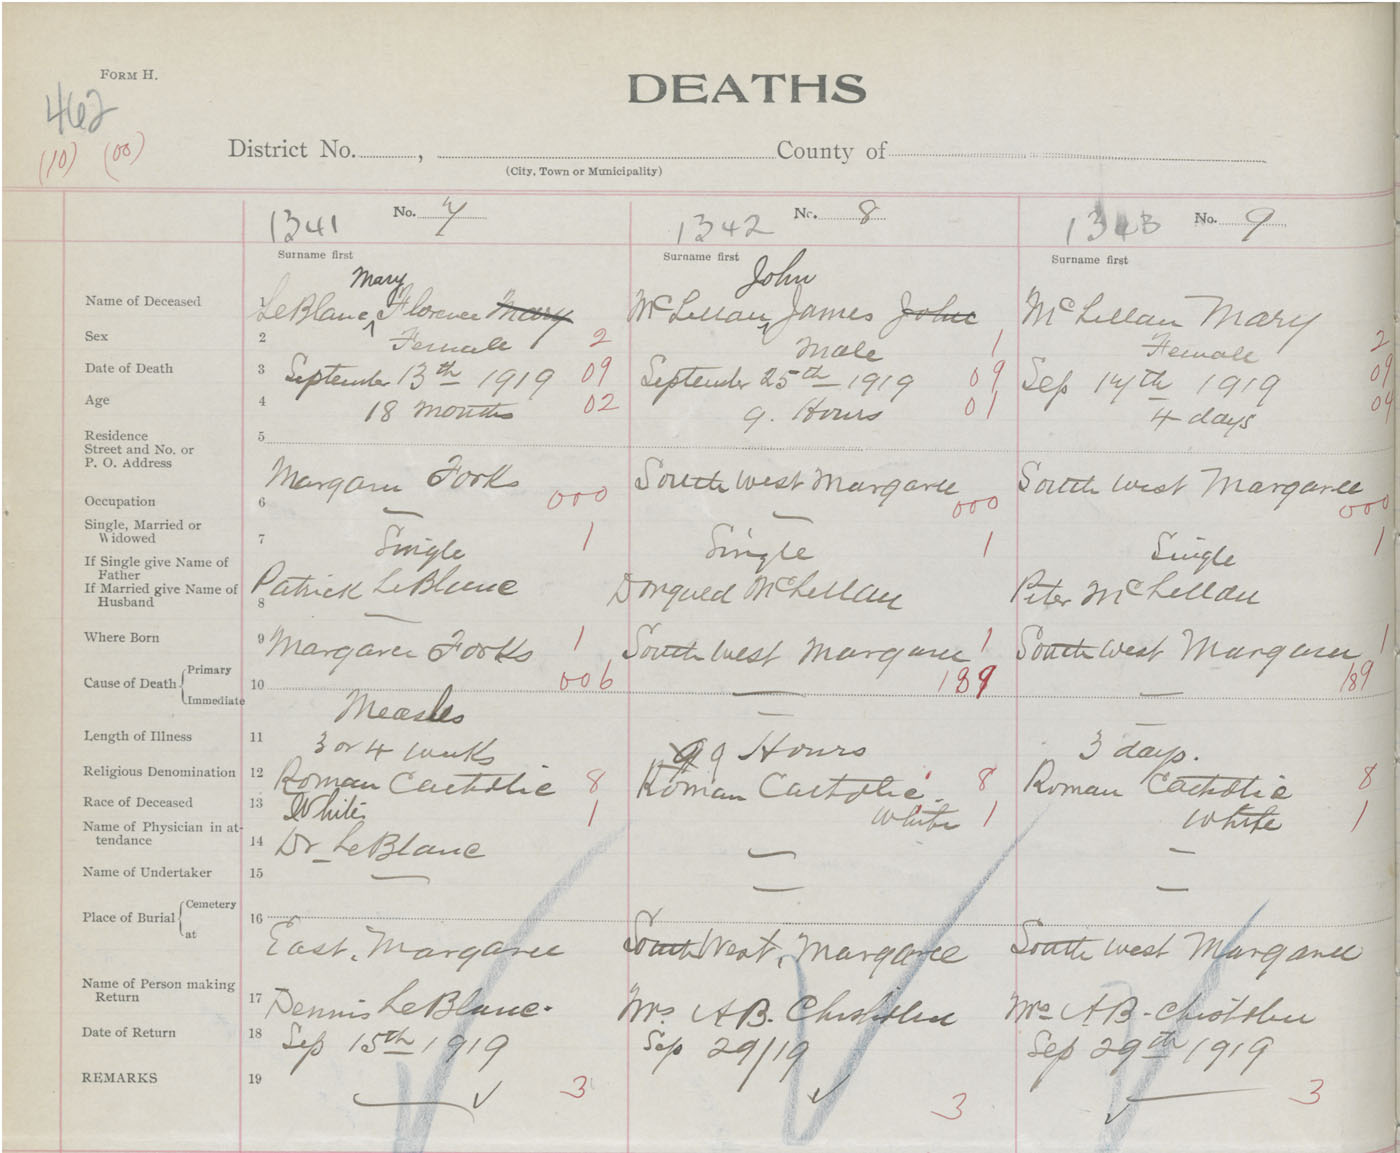 FORM H.
DEATHS
462
(10) (00)
District No. , County of
(City, Town or Municipality)
1341 No. 7 1342 No. 8 1343 No. 9
Surname first Surname first Surname first
Mary John
Name of Deceased 1 LeBlanc, Florence Mary McLellan, James John McLellan Mary
Sex 2 Female 2 Male 1 Female 2
Date of Death 3 September 13th 1919 09 September 25th 1919 09 Sep 17th 1919 09
Age 4 18 months 02 9. Hours 01 4 days 04
Residence 5
Street and No. or
P. O. Address
Margaree Forks South West Margaree South West Margaree
Occupation 6 — 000 — 000 000
Single, Married or
Widowed 7 Single 1 Single 1 Single 1
If Single give Name of
Father
If Married give Name of
Husband 8 Patrick LeBlanc McLellan Peter McLellan
Where Born 9 Margaree Forks 1 South West Margaree 1 South West Margaree 1
Cause of Death Primary 10 006 — 189 — 189
Immediate Measles — —
Length of Illness 11 3 or 4 weeks 9 Hours 3 days.
Religious Denomination 12 Roman Catholic 8 Roman Catholic 8 Roman Catholic 8
Race of Deceased 13 White 1 White 1 White 1
Name of Physician in at-
tendance 14 Dr LeBlanc — —
Name of Undertaker 15 — — —
Place of Burial Cemetery 16
at East, Margaree South West, Margaree South West Margaree
Name of Person making
Return 17 Dennis LeBlanc. Mrs. A B. Chisholm Mrs A B. Chisholm
Date of Return 18 Sep 15th 1919 Sep 29/19 Sep 29th 1919
REMARKS 19 — ✓ 3 ✓ 3 ✓ — 3